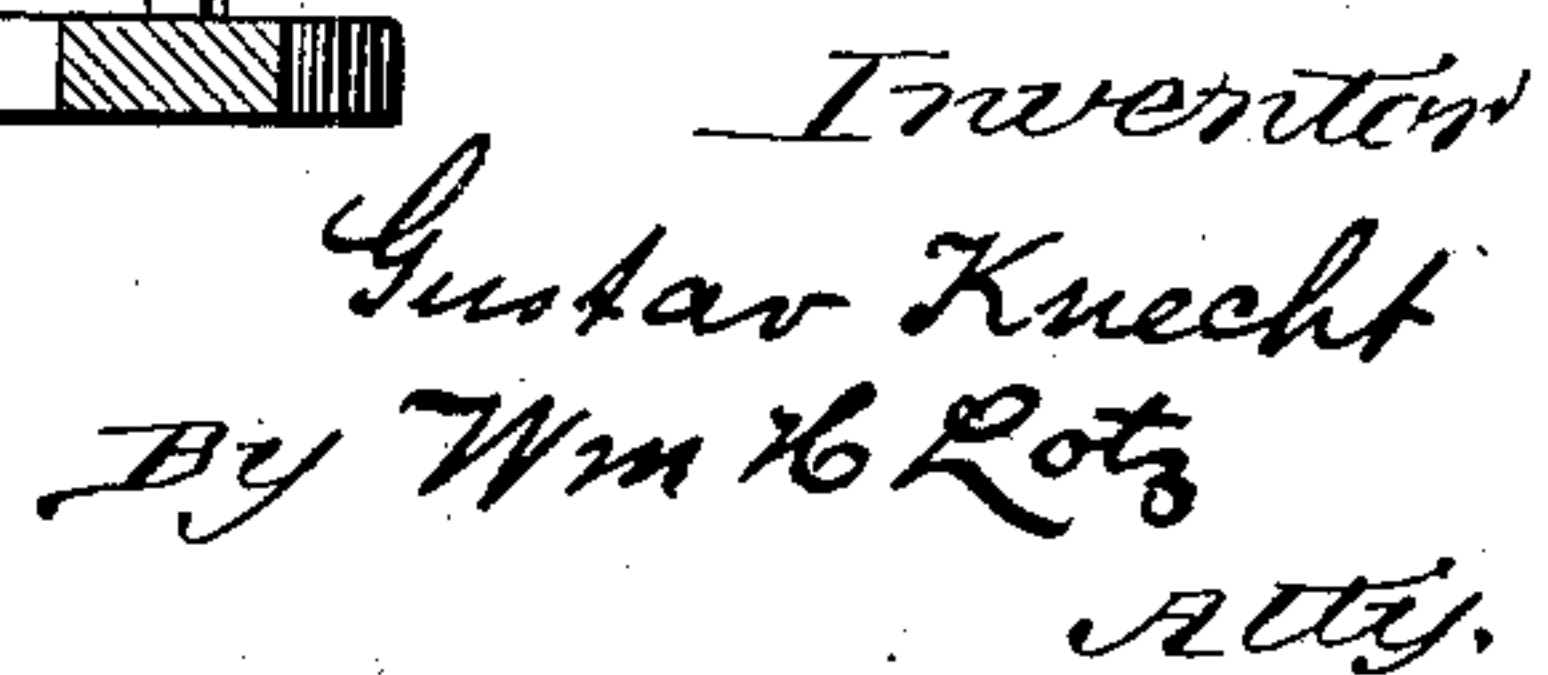 Inventor
Gustav Knecht
By Wm H Lotz
Atty.